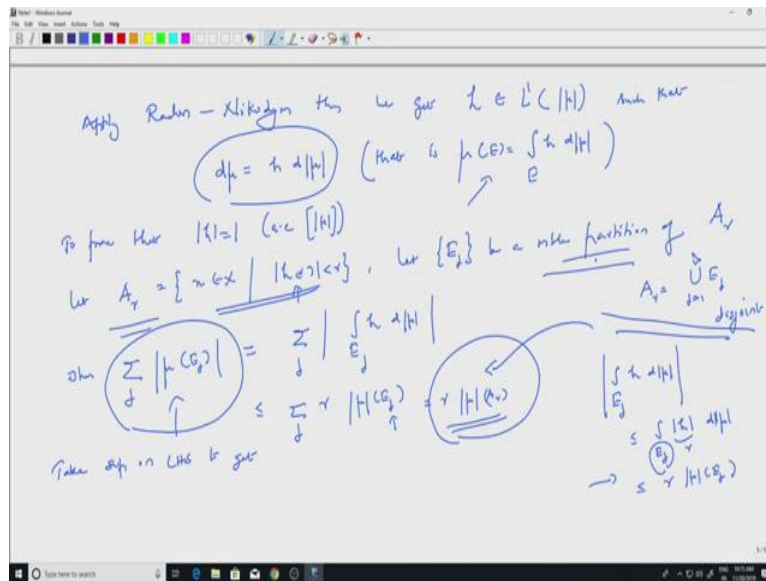 Note1 - Windows Journal
File Edit View Insert Actions Tools Help
Apply Radon - Nikodym thm we get h ∈ L¹(|μ|) such that
dμ = h d|μ| (that is μ(E) = ∫_E h d|μ|)
To prove that |h|=1 (a.e [|μ|])
Let A_r = {x ∈ X | |h(x)|<r}, Let {E_j} be a mble partition of A_r
A_r = ∪_{j=1}^∞ E_j
disjoint
Then ∑_j |μ(E_j)| = ∑_j |∫_{E_j} h d|μ||
≤ ∑_j r |μ|(E_j) = r |μ|(A_r)
|∫_{E_j} h d|μ||
≤ ∫_{E_j} |h| d|μ|
r
→ ≤ r |μ|(E_j)
Take sup on LHS to get
Type here to search